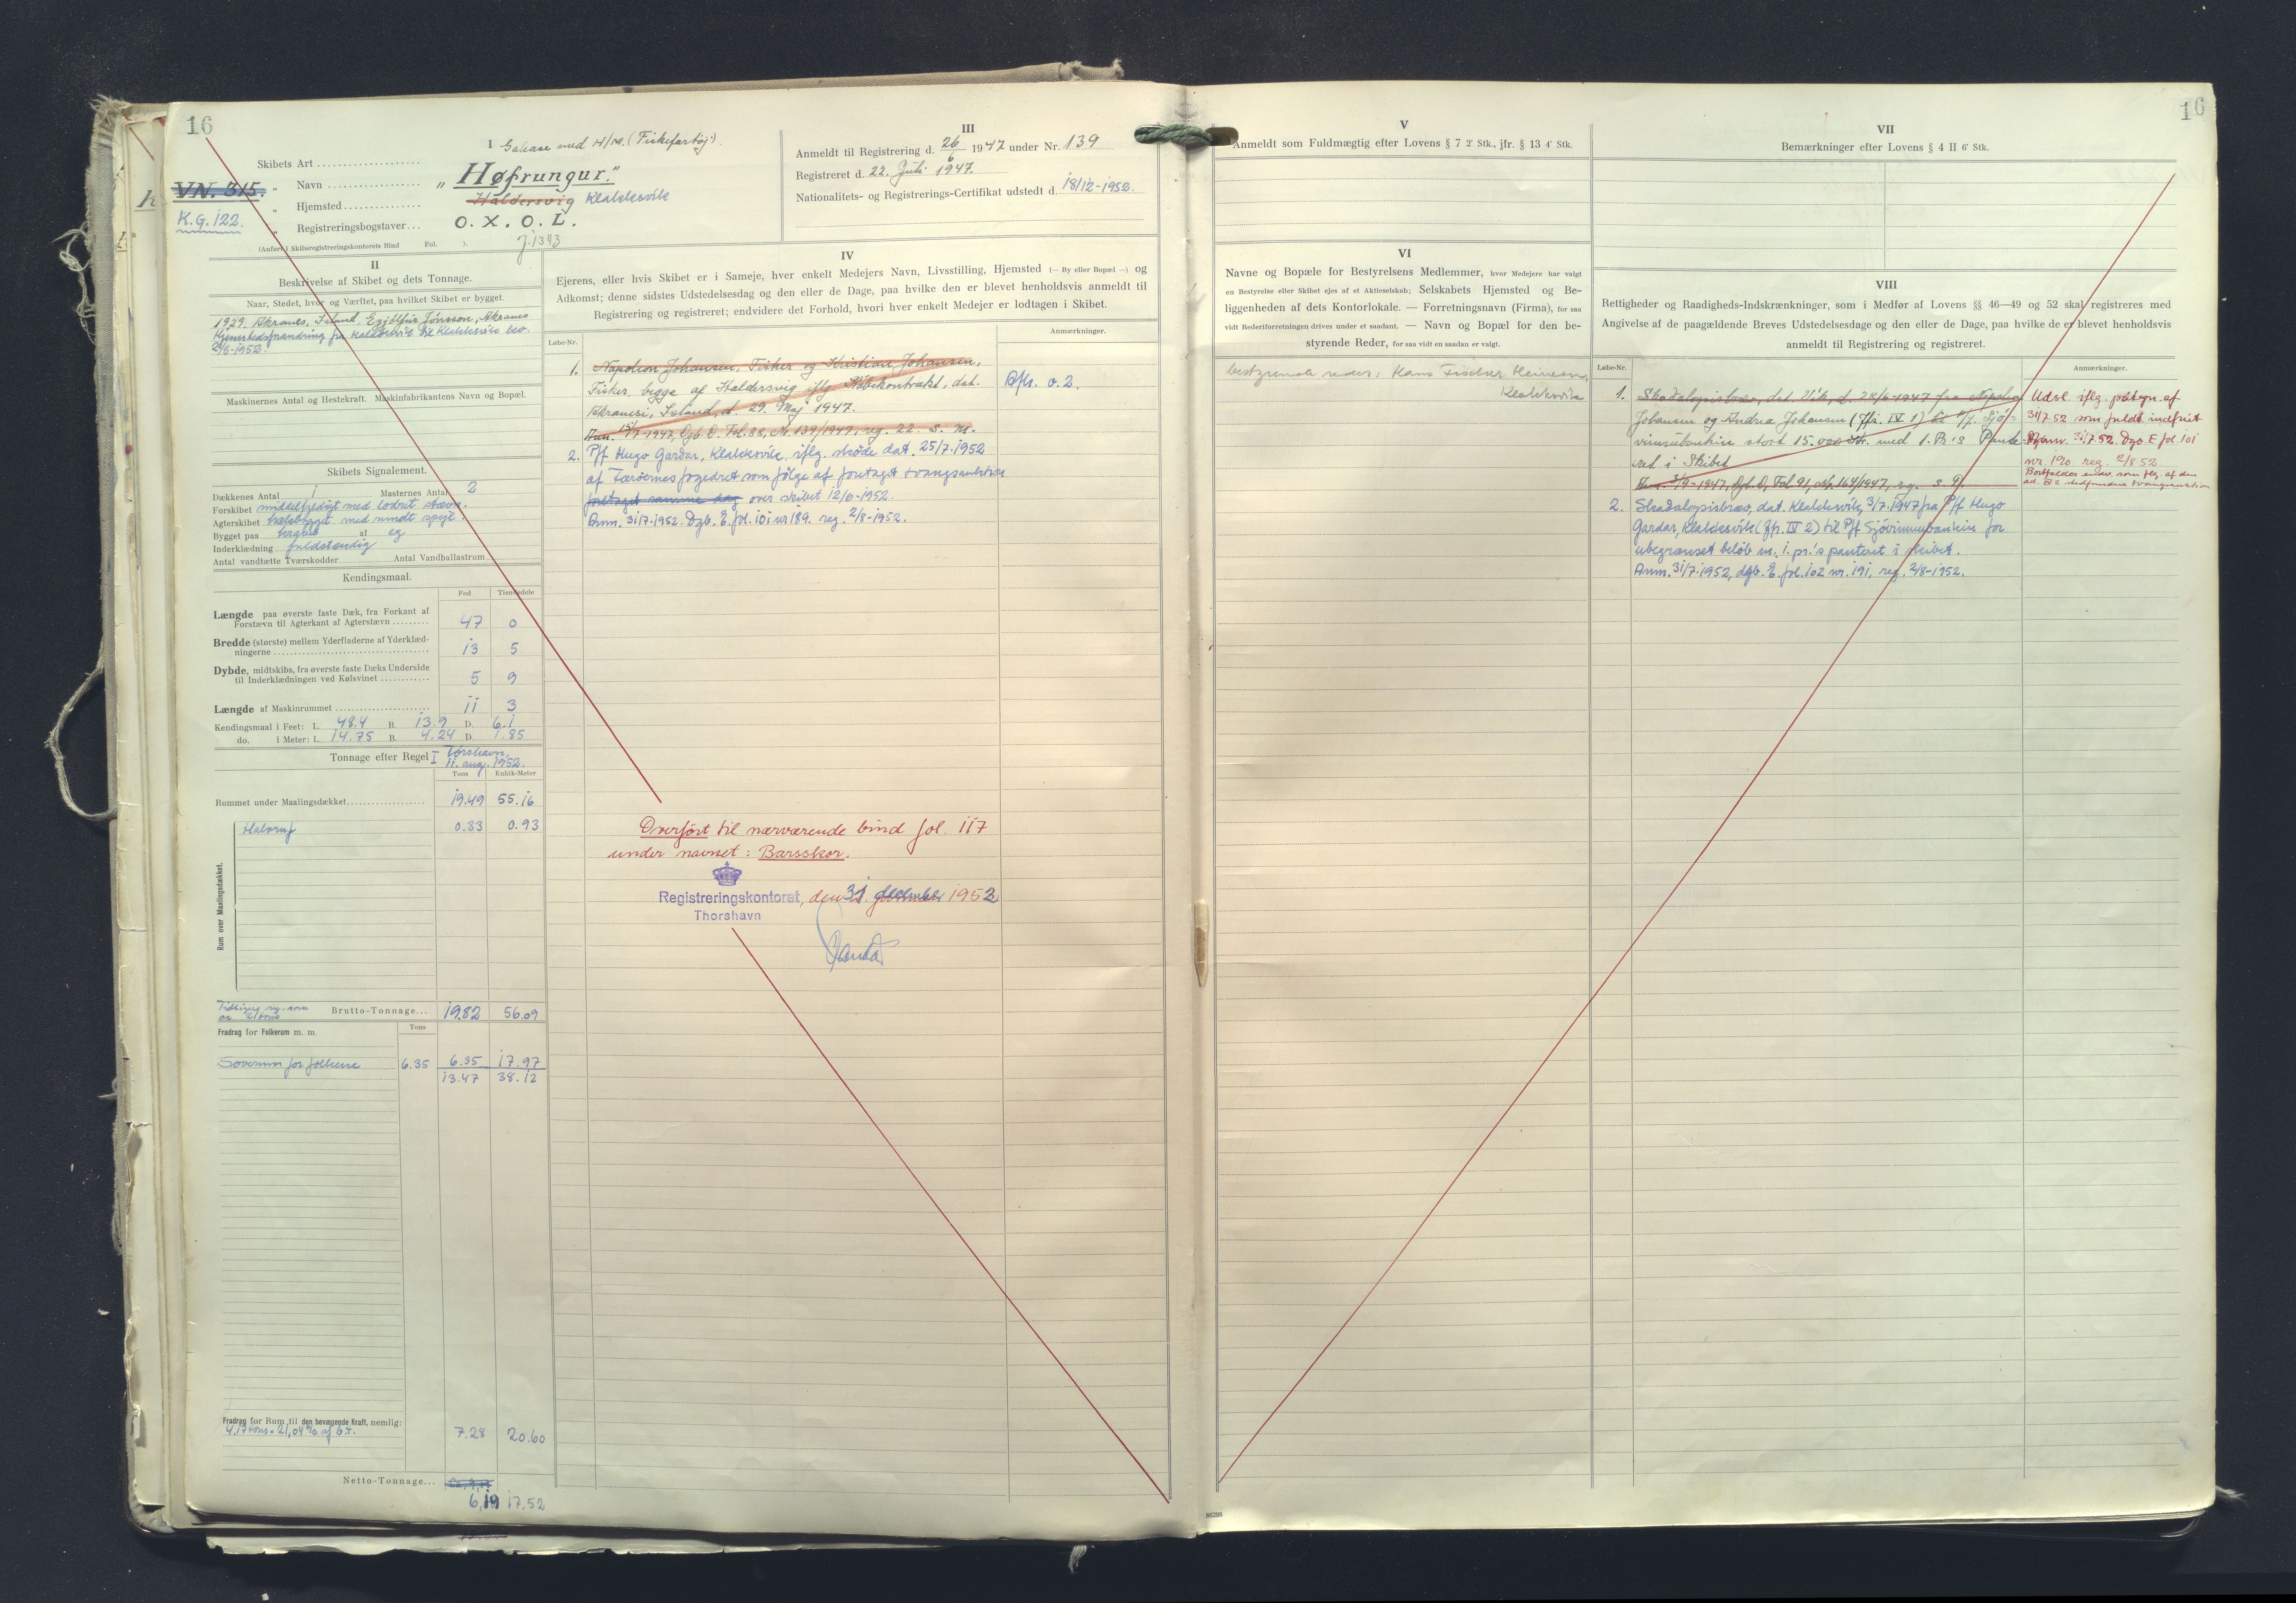 16
I Galease med H/M. (Fiskefartøj).
Skibets Art
VN. 315.
K.G. 122.
" Navn "Høfrungur."
" Hjemsted Haldersvig Klakksvik
" Registreringsbogstaver... O. X. O. L.
(Anført i Skibsregistreringskontorets Bind Fol. ). J. 1343
II
Beskrivelse af Skibet og dets Tonnage.
Naar, Stedet, hvor og Værftet, paa hvilket Skibet er bygget.
1929. Akranes, Island, Eyjólfur Jónsson, Akranes
Hjemstedsforandring fra Haldersvik til Klakksvik
2/8-1952.
Maskinernes Antal og Hestekraft. Maskinfabrikantens Navn og Bopæl.
Skibets Signalement.
Dækkenes Antal 1 Masternes Antal 2
Forskibet middelfyldigt med lodret stævn.
Agterskibet med rundt spejl.
Bygget paa kravel af eg
Inderklædning fuldstændig
Antal vandtætte Tværskodder Antal Vandballastrum
Kendingsmaal.
Fod Tiendedele
Længde paa øverste faste Dæk, fra Forkant af
Forstævn til Agterkant af Agterstævn 47 0
Bredde (største) mellem Yderfladerne af Yderklæd-
ningerne 13 5
Dybde, midtskibs, fra øverste faste Dæks Underside
til Inderklædningen ved Kølsvinet 5 9
Længde af Maskinrummet 11 3
Kendingsmaal i Feet: L. 48.4 B. 13.9 D. 6.1
do. i Meter: L. 14.75 B. 4.24 D. 1.85
Tonnage efter Regel I Tórshavn,
11. aug. 1952.
Tons Kubik-Meter
Rummet under Maalingsdækket 19.49 55.16
Rum over Maalingsdækket.
Halvruf 0.33 0.93
Tidligere reg. som
Brutto-Tonnage... 19.82 56.09
Fradrag for Folkerum m. m. Tons
Soverum for folkene 6.35 6.35 17.97
13.47 38.12
Fradrag for Rum til den bevægende Kraft, nemlig:
4.17 tons = 21,04% af b.t. 7.28 20.60
Netto-Tonnage...
6,19 17.52
III
Anmeldt til Registrering d. 26/6 1947 under Nr. 139
Registreret d. 22. Juli 1947.
Nationalitets- og Registrerings-Certifikat udstedt d. 18/12-1952.
IV
Ejerens, eller hvis Skibet er i Sameje, hver enkelt Medejers Navn, Livsstilling, Hjemsted (— By eller Bopæl —) og
Adkomst; denne sidstes Udstedelsesdag og den eller de Dage, paa hvilke den er blevet henholdsvis anmeldt til
Registrering og registreret; endvidere det Forhold, hvori hver enkelt Medejer er lodtagen i Skibet.
Løbe-Nr. Anmærkninger.
1. Napoleon Johansen, Fisker og Kristian Johansen,
Fisker, begge af Haldersvig iflg. Købekontrakt, dat.
Akranesi, Island, d. 29. Maj 1947.
Anm. 15/7-1947, Dgb. D. Fol. 88, Nr. 139/1947, reg. 22. s. M.
Afls. o. 2.
2. P/f Hugo Gardar, Klakksvik, iflg. skøde dat. 25/7.1952
af Færøernes fogedret som følge af foretaget tvangsauktion
foretaget samme dag over skibet 12/6-1952.
Anm. 31/7.1952. Dgb. E. fol. 101 nr 189. reg. 2/8-1952.
Overført til nærværende bind fol. 117
under navnet: Barsskor.
Registreringskontoret, den 31. december 1952
Thorshavn
V
Anmeldt som Fuldmægtig efter Lovens § 7 2' Stk., jfr. § 13 4' Stk.
VI
Navne og Bopæle for Bestyrelsens Medlemmer, hvor Medejere har valgt
en Bestyrelse eller Skibet ejes af et Aktieselskab; Selskabets Hjemsted og Be-
liggenheden af dets Kontorlokale. — Forretningsnavn (Firma), for saa
vidt Rederiforretningen drives under et saadant. — Navn og Bopæl for den be-
styrende Reder, for saa vidt en saadan er valgt.
bestyrende reder: Hans Fischer Heinesen,
Klakksvik
VII
Bemærkninger efter Lovens § 4 II 6' Stk.
16
VIII
Rettigheder og Raadigheds-Indskrænkninger, som i Medfør af Lovens §§ 46—49 og 52 skal registreres med
Angivelse af de paagældende Breves Udstedelsesdage og den eller de Dage, paa hvilke de er blevet henholdsvis
anmeldt til Registrering og registreret.
Løbe-Nr. Anmærkninger.
1. Skadeløsbrev, dat. Vik, d. 28/6-1947 fra Napoleon
Johansen og Andrea Johansen (jfr. IV 1) til P/f. Sjó-
vinnubankin stort 15.000 Kr. med 1. Pr's Pante-
ret i Skibet
Anm. 3/9-1947, Dgb. D, Fol 91, Nr. 164/1947, reg. s. D.
Udsl. iflg. påtegn. af
31/7.52 som fuldt indfriet
Anm. 31/7.52. Dgb. E fol. 101
nr. 190. reg. 2/8 52
2. Skadeløsbrev, dat. Klakksvik, 3/7.1947 fra P/f Hugo
Gardar, Klakksvik (jfr. IV 2) til P/f Sjóvinnubankin for
ubegrænset beløb m. 1. pr.'s panteret i skibet.
Anm. 31/7.1952, dgb. E. fol. 102 nr. 191, reg. 2/8-1952.